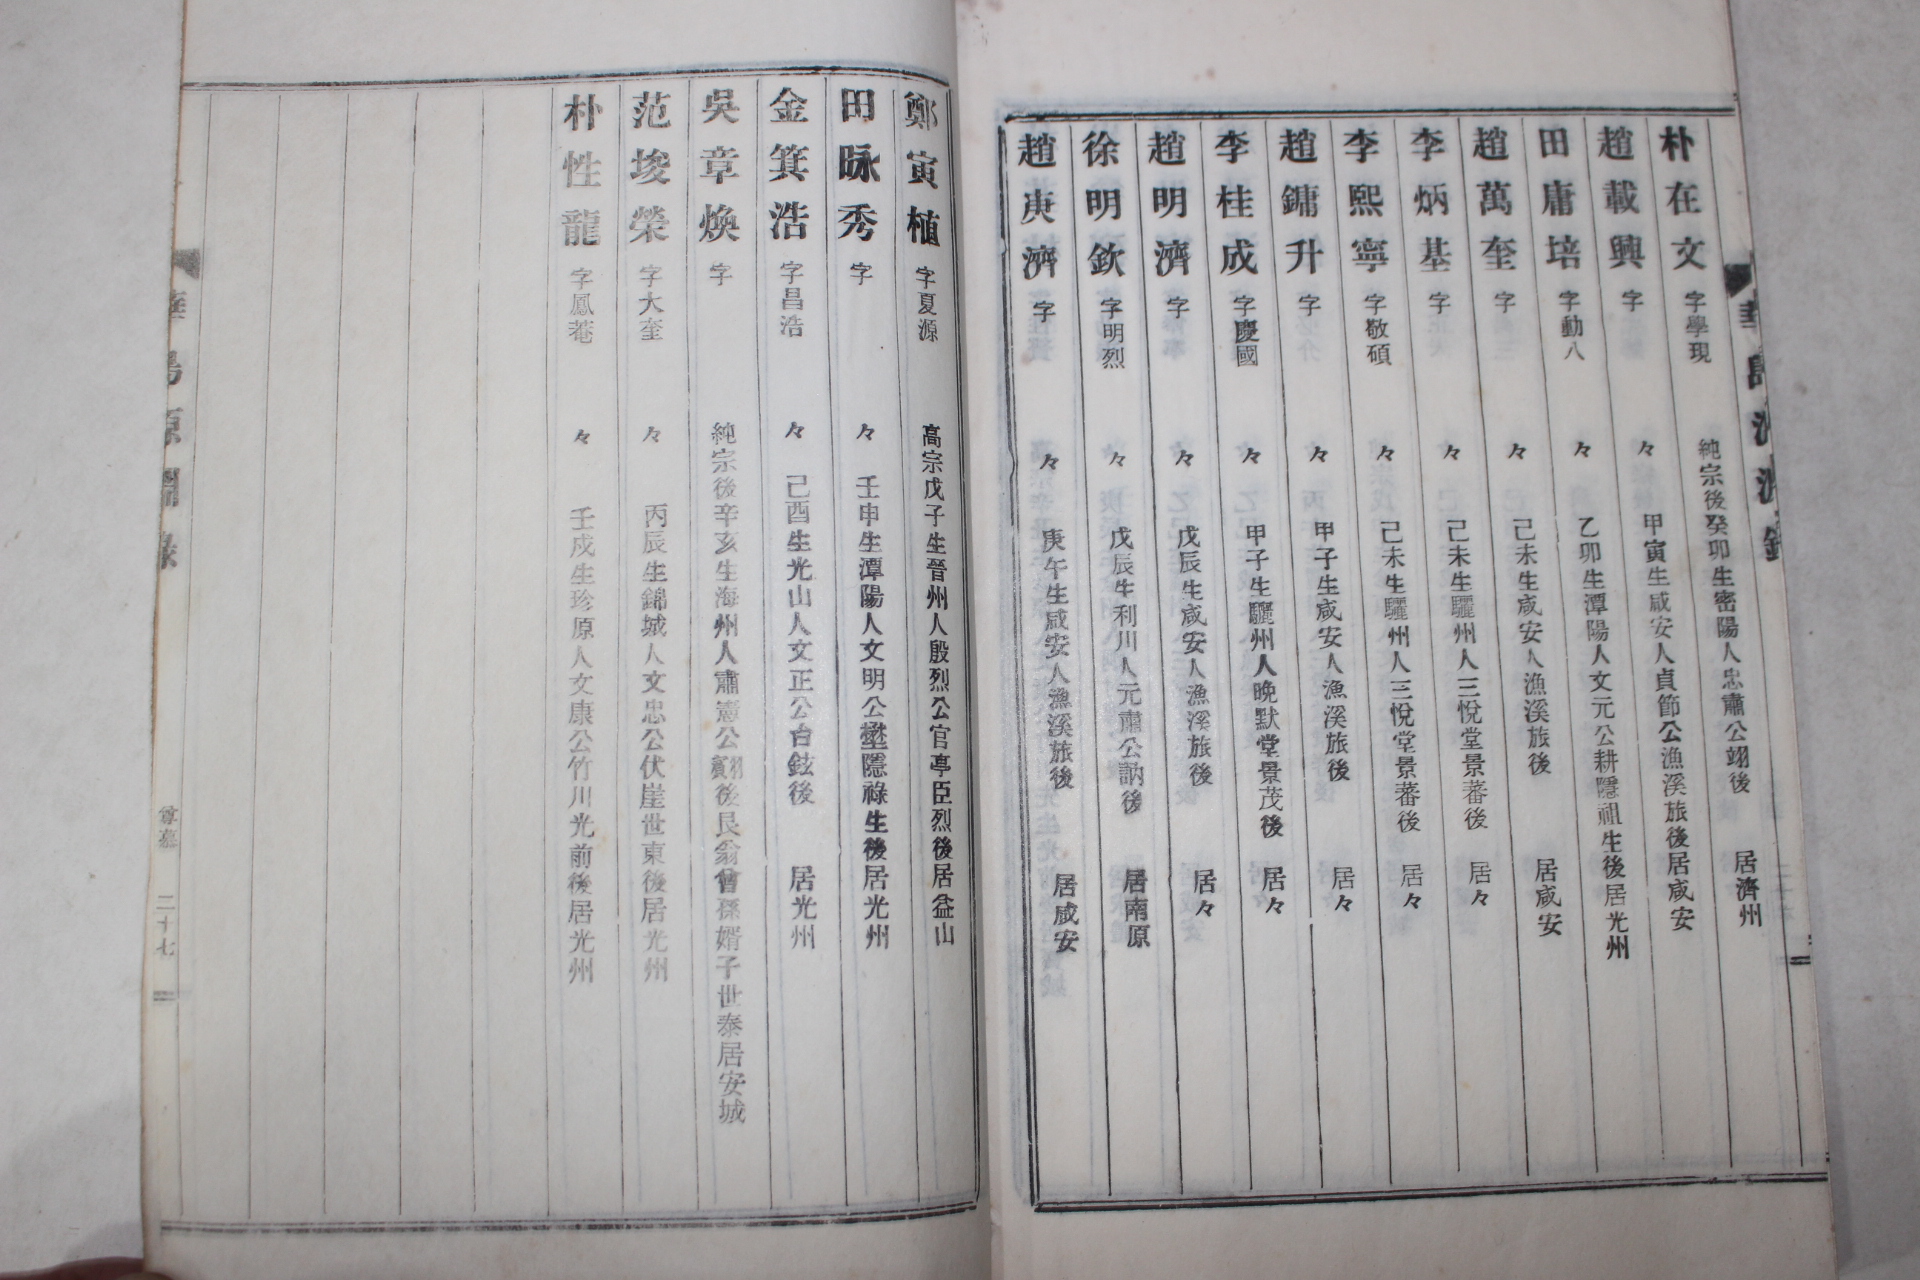 朴在文 字學現 純宗後癸卯生密陽人忠肅公翊後 居濟州
趙載興 字 々 甲寅生咸安人貞節公漁溪旅後居咸安
田庸培 字動八 々 乙卯生潭陽人文元公耕隱祖生後居光州
趙萬奎 字 々 己未生咸安人漁溪旅後 居咸安
李炳基 字 々 己未生驪州人三悅堂景蕃後 居々
李熙寧 字敬碩 々 己未生驪州人三悅堂景蕃後 居々
趙鏞升 字 々 甲子生咸安人漁溪旅後 居々
李桂成 字慶國 々 甲子生驪州人晚默堂景茂後 居々
趙明濟 字 々 戊辰生咸安人漁溪旅後 居々
徐明欽 字明烈 々 戊辰生利川人元肅公訥後 居南原
趙庚濟 字 々 庚午生咸安人漁溪旅後 居咸安
鄭寅植 字夏源 高宗戊子生晉州人殷烈公官亭臣烈後居益山
田昹秀 字 々 壬申生潭陽人文明公壄隱祿生後居光州
金箕浩 字昌浩 々 己酉生光山人文正公台鉉後 居光州
吳章煥 字 純宗後辛亥生海州人肅憲公翻後艮翁曾孫婿子世泰居安城
范埈榮 字大奎 々 丙辰生錦城人文忠公伏崖世東後居光州
朴性龍 字鳳菴 々 壬戌生珍原人文康公竹川光前後居光州
二十七